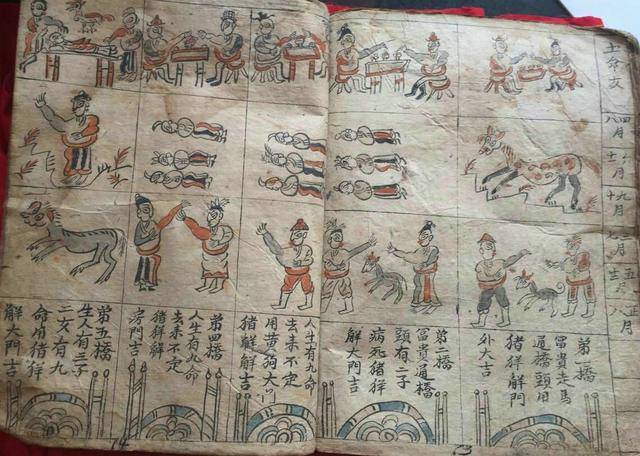 土命女
八四月
十二六月
十九月
七月
十二五月
八正月
第一橋
富貴走馬
過橋頭用
猪羊解門
外大吉
第二橋
富貴過橋
頭有二子
病死猪羊
解大門吉
人生有九命
去来不定
用黄狗大
猪解解吉
第四橋
人生有九命
去来不定
猪羊解
房門吉
第五橋
生人有三子
二女有九
命用猪羊
解大門吉
13
14